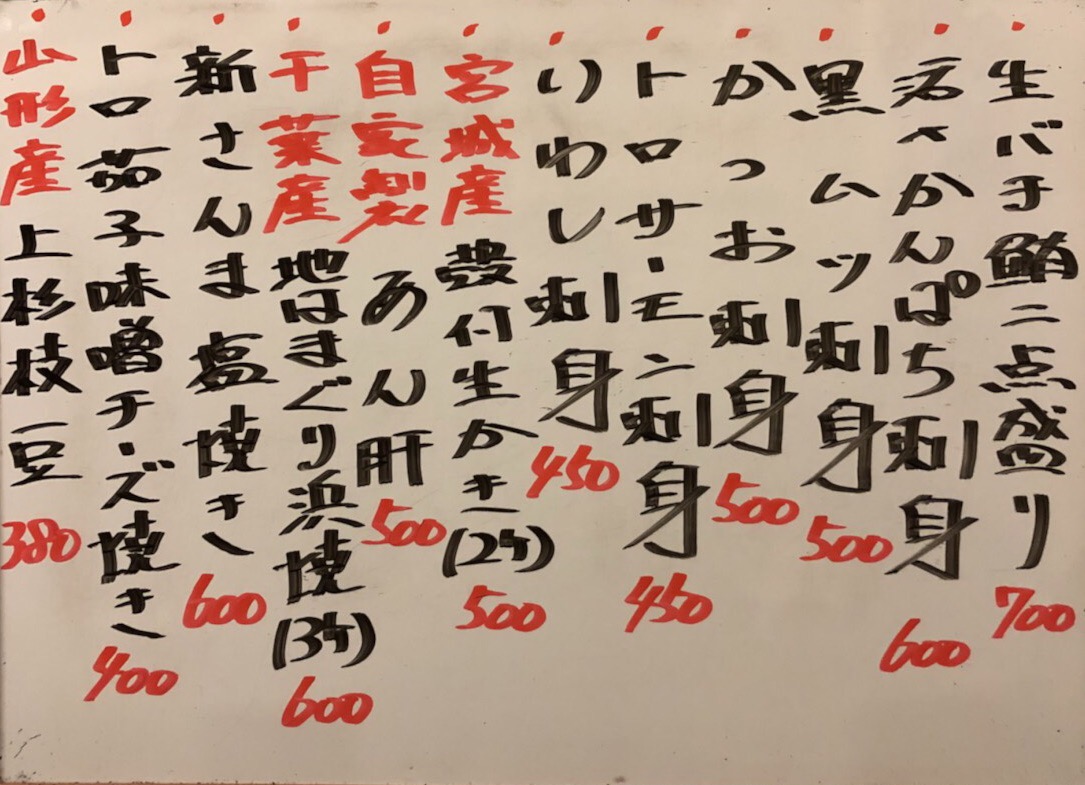 生バチ鮪二点盛り 700
活〆かんぱち刺身 600
黒ムツ刺身 500
かつお刺身 500
トロサーモン刺身 450
いわし刺身 450
宮城産 殻付生かき(2ケ) 500
自家製 あん肝 500
千葉産 地はまぐり浜焼(3ケ) 600
新さんま 塩焼き 600
トロ茄子味噌チーズ焼き 400
山形産 上杉枝豆 380